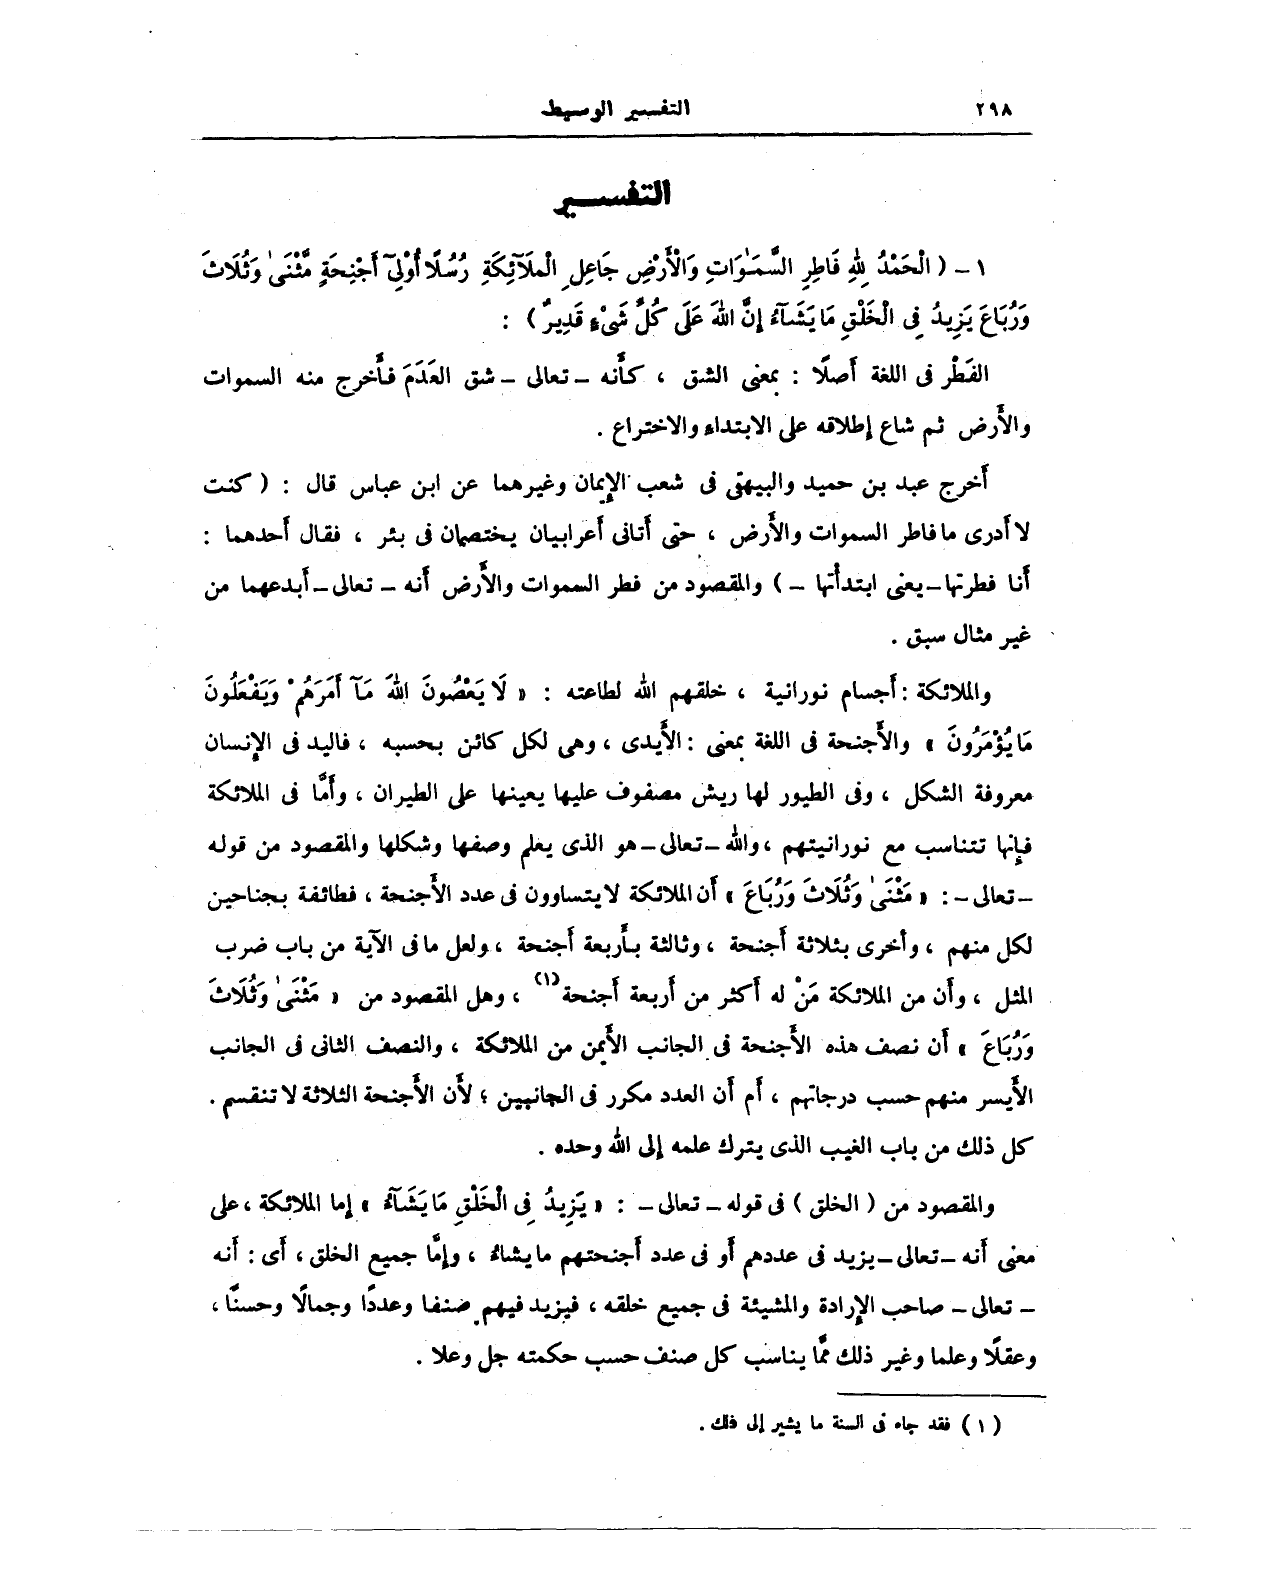 ٢٩٨
التفسير الوسيط
التفسير
١ – ( الْحَمْدُ لِلَّهِ فَاطِرِ السَّمَـٰوَاتِ وَالْأَرْضِ جَاعِلِ الْمَلَآئِكَةِ رُسُلًا أُوْلِىٓ أَجْنِحَةٍ مَّثْنَىٰ وَثُلَاثَ
وَرُبَاعَ يَزِيدُ فِى الْخَلْقِ مَا يَشَآءُ إِنَّ اللهَ عَلَى كُلِّ شَىْءٍ قَدِيرٌ ) :
الفَطْر فى اللغة أصلًا : بمعنى الشق ، كأنه – تعالى – شق العَدَمَ فأخرج منه السموات
والأرض ثم شاع إطلاقه على الابتداء والاختراع .
أخرج عبد بن حميد والبيهقى فى شعب الإيمان وغيرهما عن ابن عباس قال : ( كنت
لا أدرى ما فاطر السموات والأرض ، حتى أتانى أعرابيان يختصمان فى بئر ، فقال أحدهما :
أنا فطرتها – يعنى ابتدأتها – ) والمقصود من فطر السموات والأرض أنه – تعالى – أبدعهما من
غير مثال سبق .
والملائكة : أجسام نورانية ، خلقهم الله لطاعته : « لَا يَعْصُونَ اللهَ مَآ أَمَرَهُمْ وَيَفْعَلُونَ
مَا يُؤْمَرُونَ » والأجنحة فى اللغة بمعنى : الأيدى ، وهى لكل كائن بحسبه ، فاليد فى الإنسان
معروفة الشكل ، وفى الطيور لها ريش مصفوف عليها يعينها على الطيران ، وأمَّا فى الملائكة
فإنها تتناسب مع نورانيتهم ، والله – تعالى – هو الذى يعلم وصفها وشكلها والمقصود من قوله
– تعالى – : « مَثْنَىٰ وَثُلَاثَ وَرُبَاعَ » أن الملائكة لا يتساوون فى عدد الأجنحة ، فطائفة بجناحين
لكل منهم ، وأخرى بثلاثة أجنحة ، وثالثة بأربعة أجنحة ، ولعل ما فى الآية من باب ضرب
المثل ، وأن من الملائكة مَنْ له أكثر من أربعة أجنحة (١) ، وهل المقصود من « مَثْنَىٰ وَثُلَاثَ
وَرُبَاعَ » أن نصف هذه الأجنحة فى الجانب الأيمن من الملائكة ، والنصف الثانى فى الجانب
الأيسر منهم حسب درجاتهم ، أم أن العدد مكرر فى الجانبين ؛ لأن الأجنحة الثلاثة لا تنقسم .
كل ذلك من باب الغيب الذى يترك علمه إلى الله وحده .
والمقصود من ( الخلق ) فى قوله – تعالى – : « يَزِيدُ فِى الْخَلْقِ مَا يَشَآءُ » إما الملائكة ، على
معنى أنه – تعالى – يزيد فى عددهم أو فى عدد أجنحتهم ما يشاءُ ، وإمَّا جميع الخلق ، أى : أنه
– تعالى – صاحب الإرادة والمشيئة فى جميع خلقه ، فيزيد فيهم صنفا وعددًا وجمالًا وحسنًا ،
وعقلًا وعلما وغير ذلك ممَّا يناسب كل صنف حسب حكمته جل وعلا .
( ١ ) فقد جاء فى السنة ما يشير إلى ذلك .